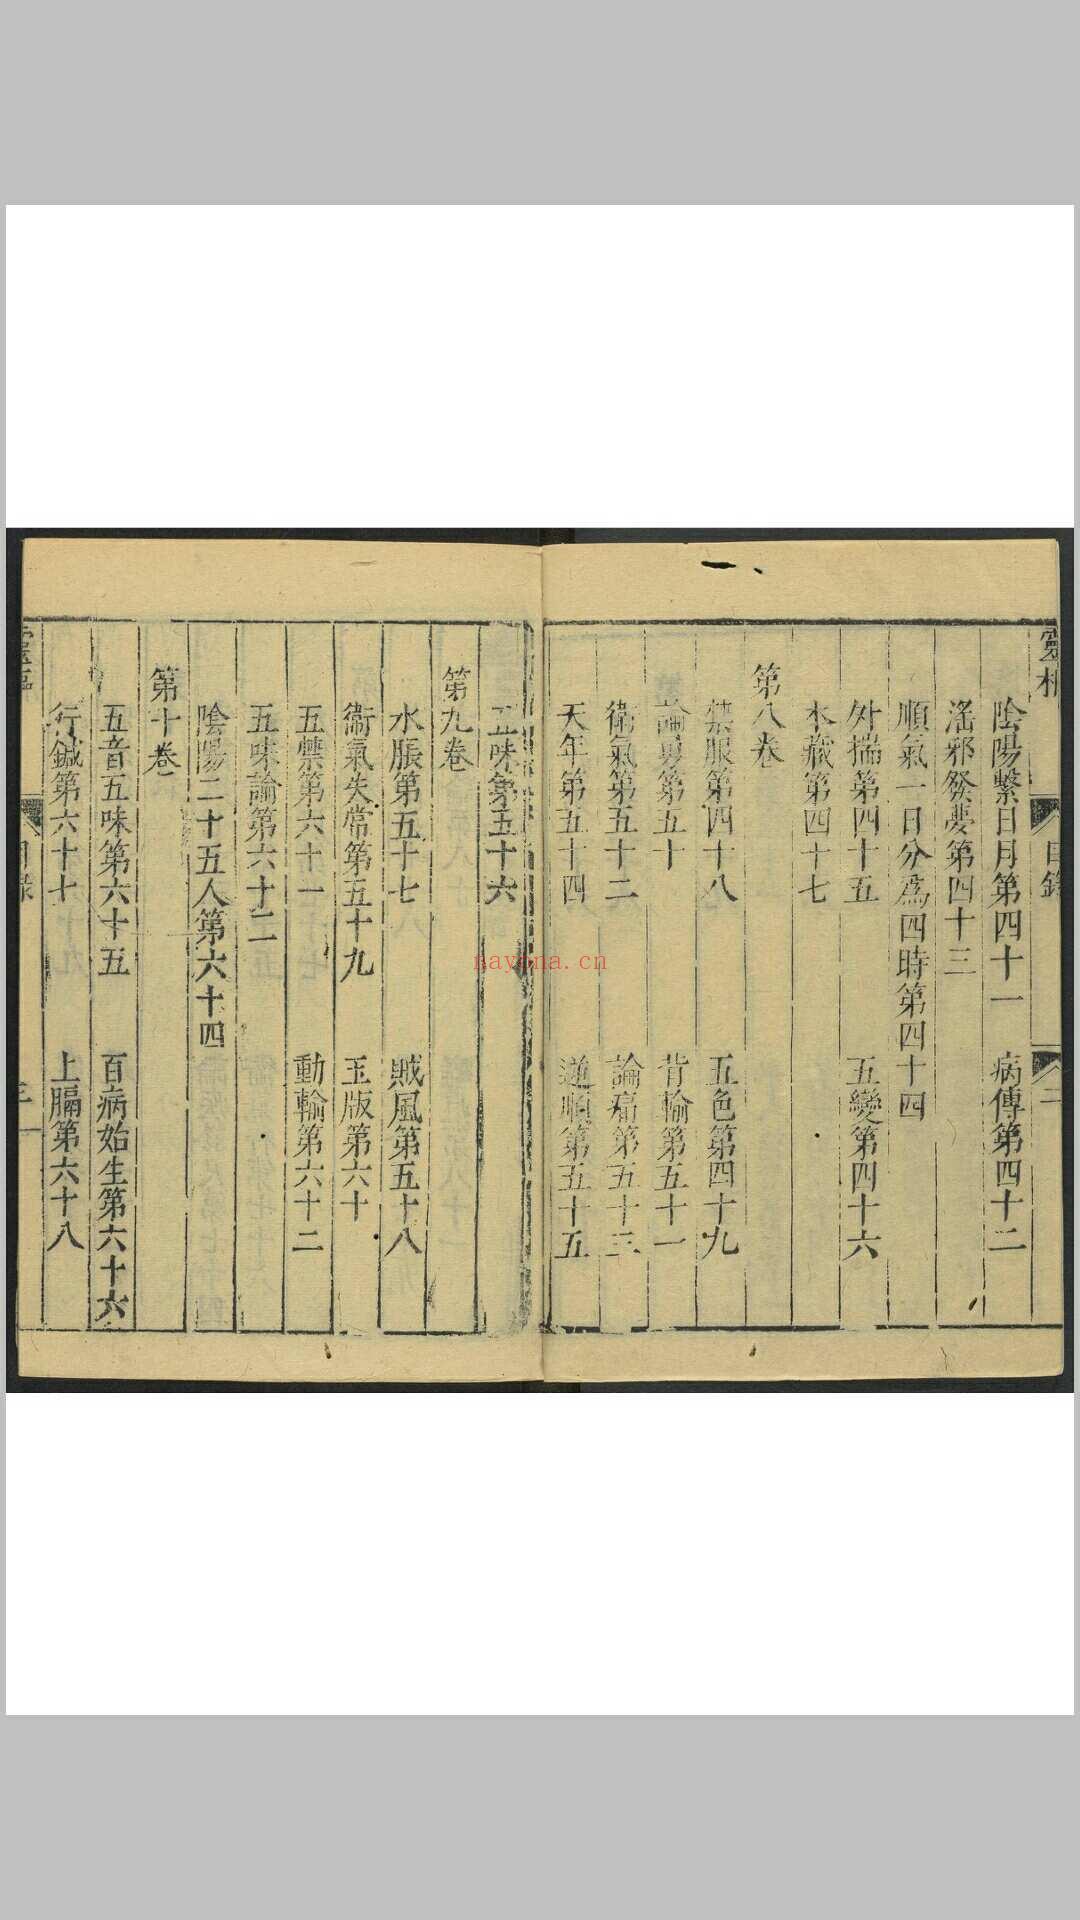 靈樞
目錄
二
陰陽繫日月第四十一 病傳第四十二
淫邪發夢第四十三
順氣一日分爲四時第四十四
外揣第四十五 五變第四十六
本藏第四十七
第八卷
禁服第四十八 五色第四十九
論勇第五十 背輸第五十一
衛氣第五十二 論痛第五十三
天年第五十四 逆順第五十五
五味第五十六
第九卷
水脹第五十七 賊風第五十八
衞氣失常第五十九 玉版第六十
五禁第六十一 動輸第六十二
五味論第六十二
陰陽二十五人第六十四
第十卷
五音五味第六十五 百病始生第六十六
行鍼第六十七 上膈第六十八
靈樞
目錄
三
nayona.cn